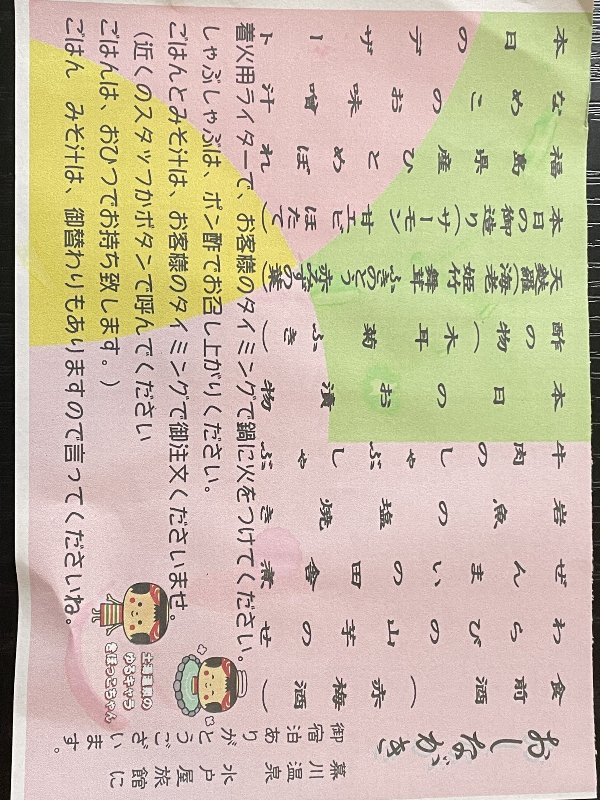 おしながき
幕川温泉
水戸屋旅館に
御宿泊ありがとうございます。
食前酒(赤梅酒)
わらびの山芋のせ
ぜんまいの田舎煮
岩魚の塩焼き
牛肉のしゃぶしゃぶ
本日のお漬物
酢の物(木耳 菊 ふき)
天麩羅 海老 姫竹 舞茸 ふきのとう 赤みずの葉)
本日の御造り(サーモン 甘エビ ほたて)
福島県産ひとめぼれ
なめこのお味噌汁
本日のデザート
着火用ライターで、お客様のタイミングで鍋に火をつけてください。
しゃぶしゃぶは、ポン酢でお召し上がりください。
ごはんとみそ汁は、お客様のタイミングで御注文くださいませ。
(近くのスタッフかボタンで呼んでください
ごはんは、おひつでお持ち致します。)
ごはん みそ汁は、御替わりもありますので言ってくださいね。
土湯温泉の
ゆるキャラ
きぼっこちゃん